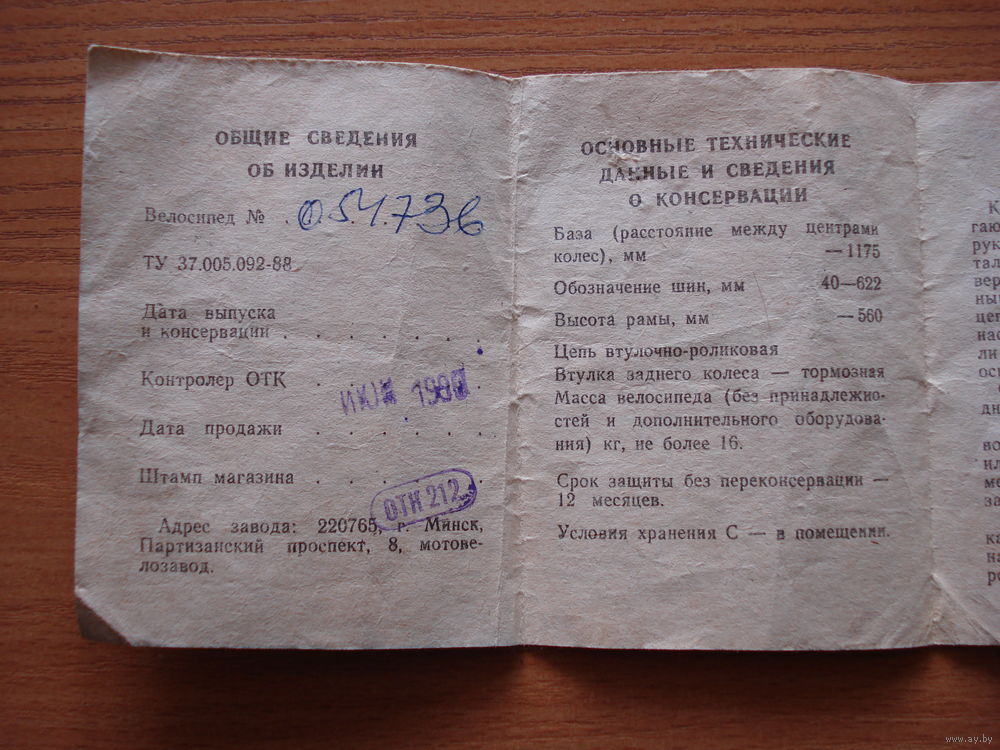 ОБЩИЕ СВЕДЕНИЯ
ОБ ИЗДЕЛИИ
Велосипед № 054736
ТУ 37.005.092-88
Дата выпуска
и консервации . . . . . .
Контролер ОТК . . . . .
1990
Дата продажи . . . . . .
Штамп магазина . . . . . .
ОТК 212
Адрес завода: 220765, г. Минск,
Партизанский проспект, 8, мотове-
лозавод.
ОСНОВНЫЕ ТЕХНИЧЕСКИЕ
ДАННЫЕ И СВЕДЕНИЯ
О КОНСЕРВАЦИИ
База (расстояние между центрами
колес), мм —1175
Обозначение шин, мм 40—622
Высота рамы, мм —560
Цепь втулочно-роликовая
Втулка заднего колеса — тормозная
Масса велосипеда (без принадлежно-
стей и дополнительного оборудова-
ния) кг, не более 16.
Срок защиты без переконсервации —
12 месяцев.
Условия хранения С — в помещении.
www.ay.by